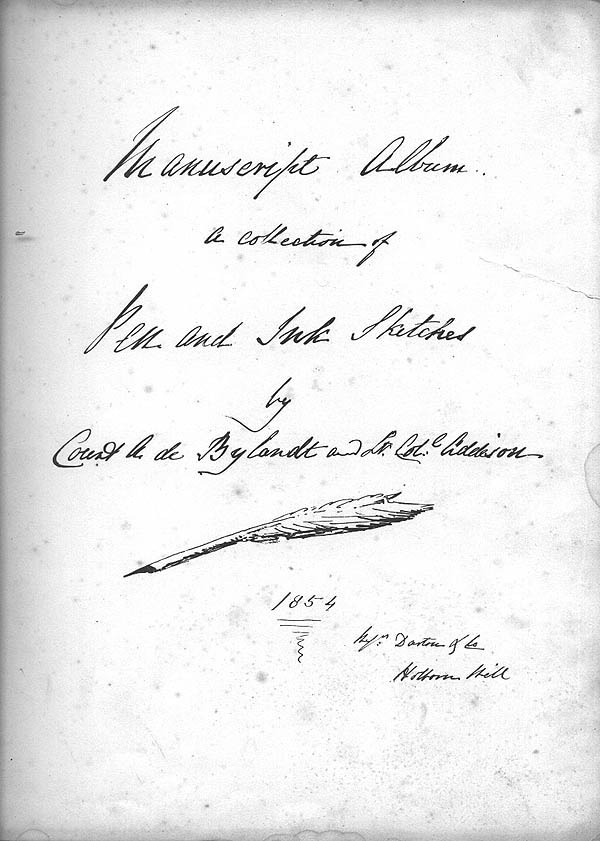 Manuscript Album.
a collection of
Pen and Ink Sketches
by
Count A. de Bylandt and Lt. Col.l Addison
1854
Darton & Co
Holborn Hill